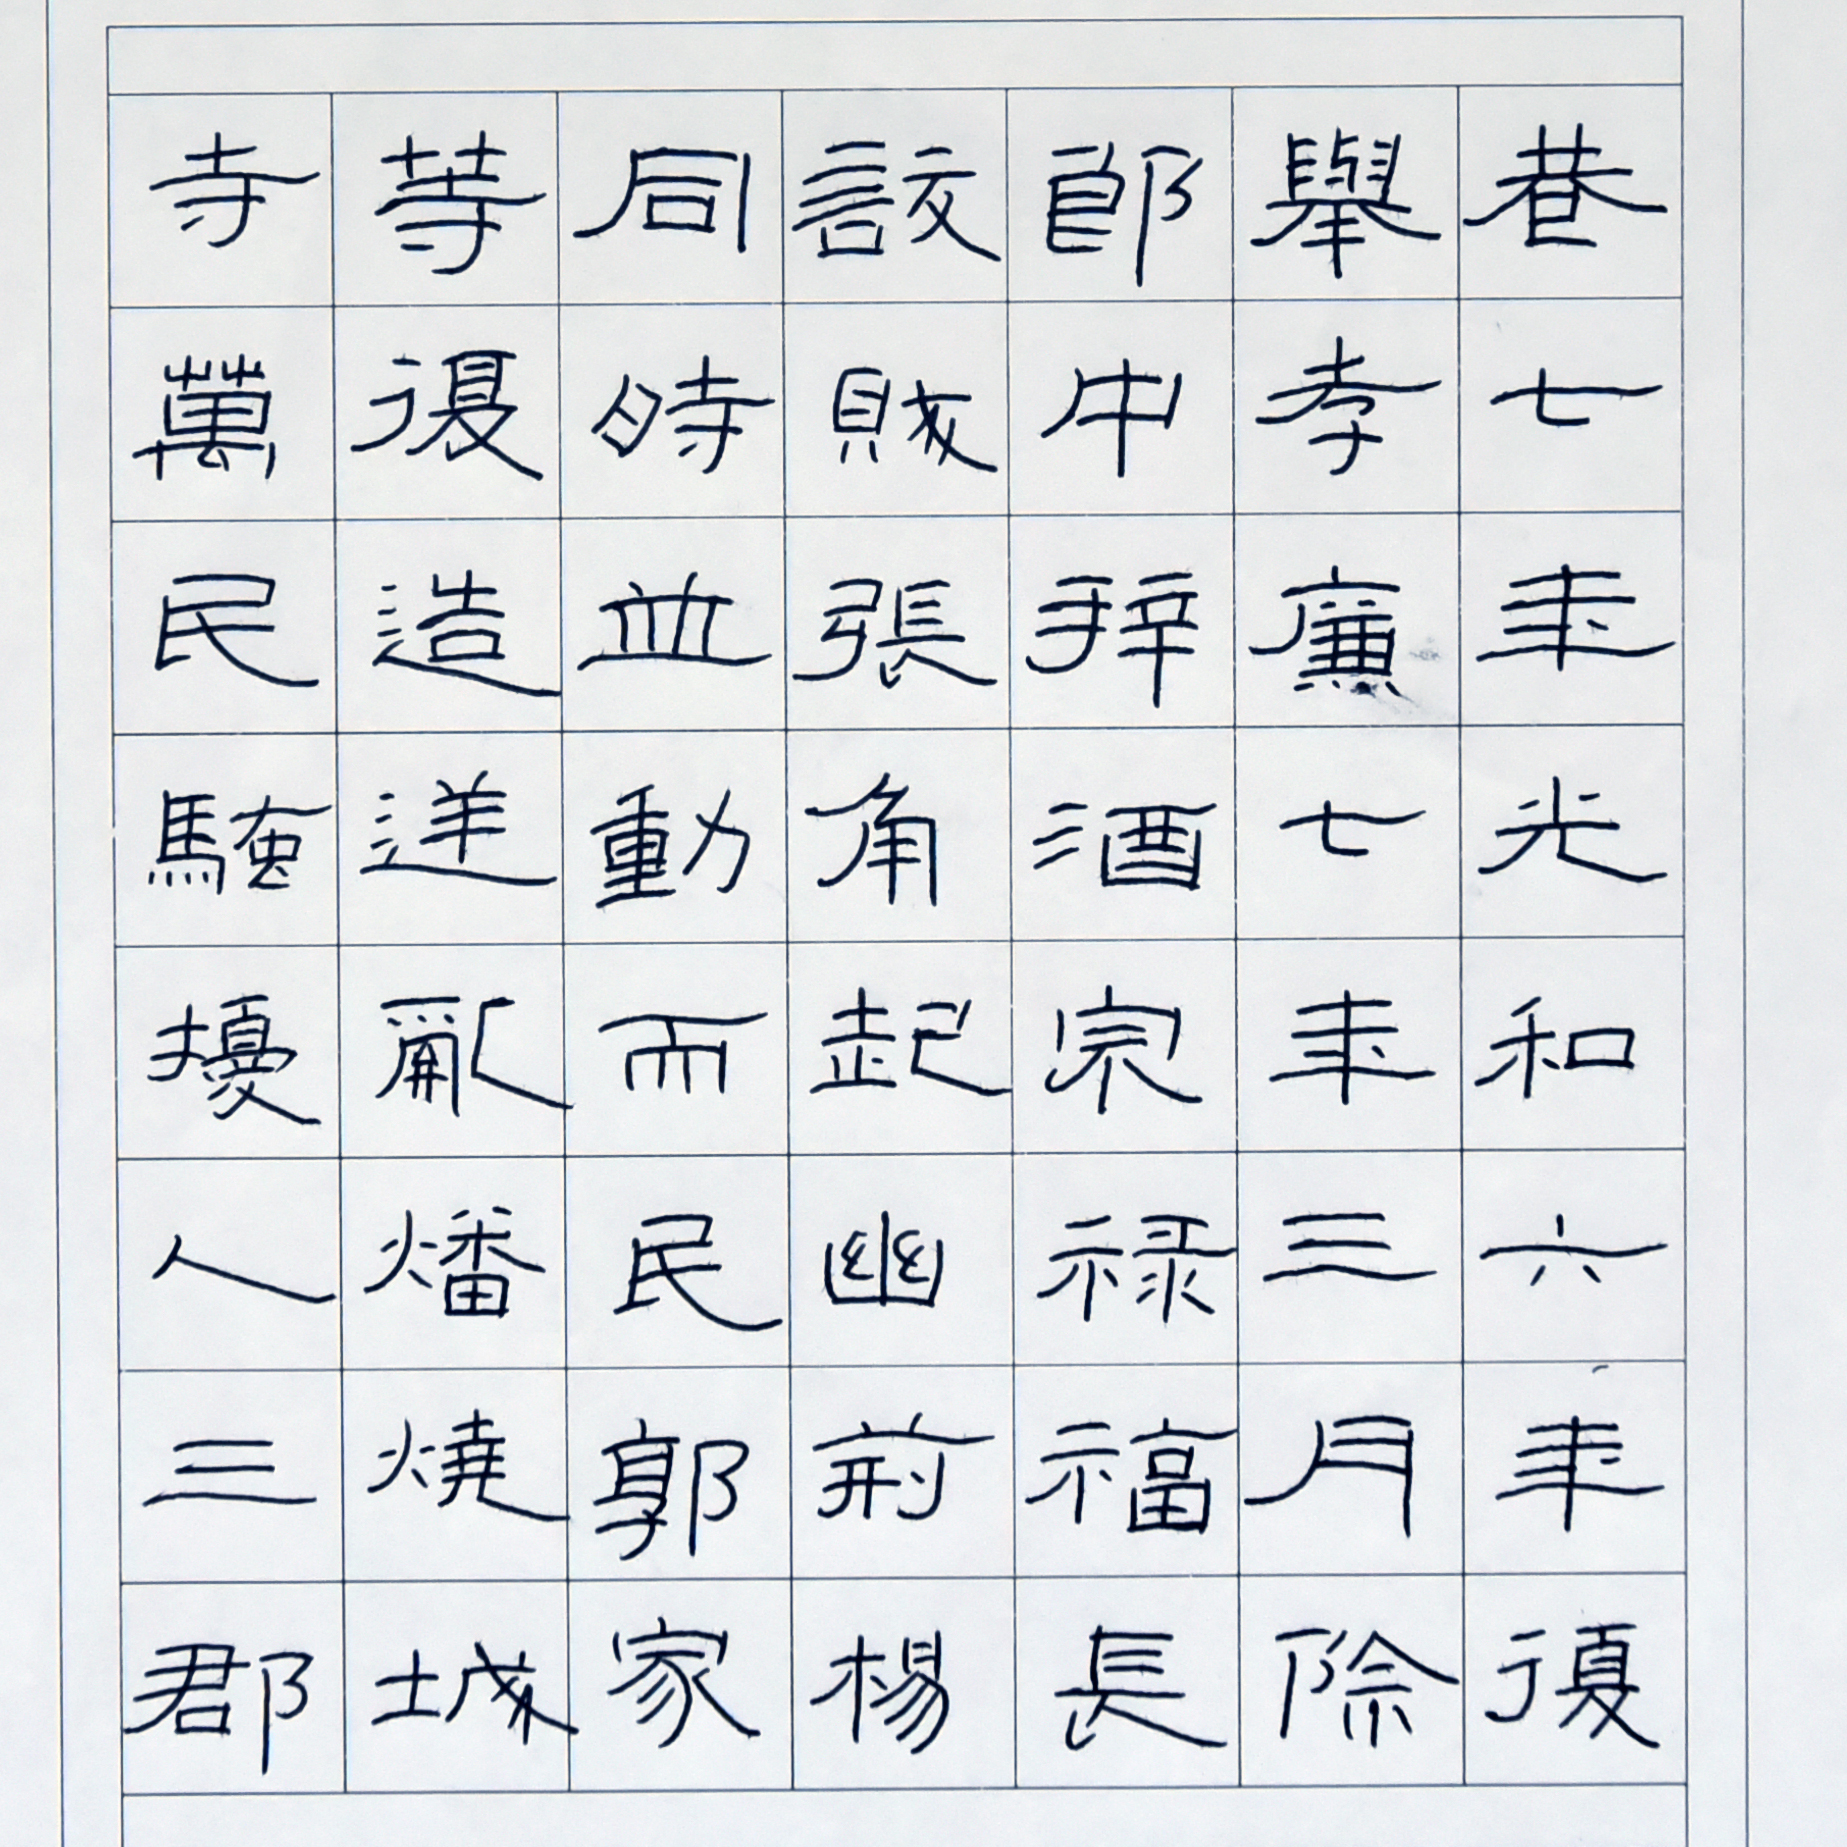 巷七年光和六年復
舉孝廉七年三月除
郎中拜酒泉祿福長
訞賊張角起幽冀兗豫荊楊
同時並動而民郭家
等復造逆亂燔燒城
寺萬民騷擾人三郡